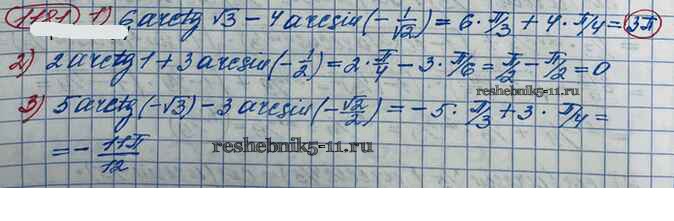 1181 1) 6 arctg √3 - 4 arcsin(-1/√2) = 6 · π/3 + 4 · π/4 = 3π
2) 2 arctg 1 + 3 arcsin(-1/2) = 2 · π/4 - 3 · π/6 = π/2 - π/2 = 0
3) 5 arctg(-√3) - 3 arcsin(-√2/2) = -5 · π/3 + 3 · π/4 =
= - 11π/12
reshebnik5-11.ru
reshebnik5-11.ru